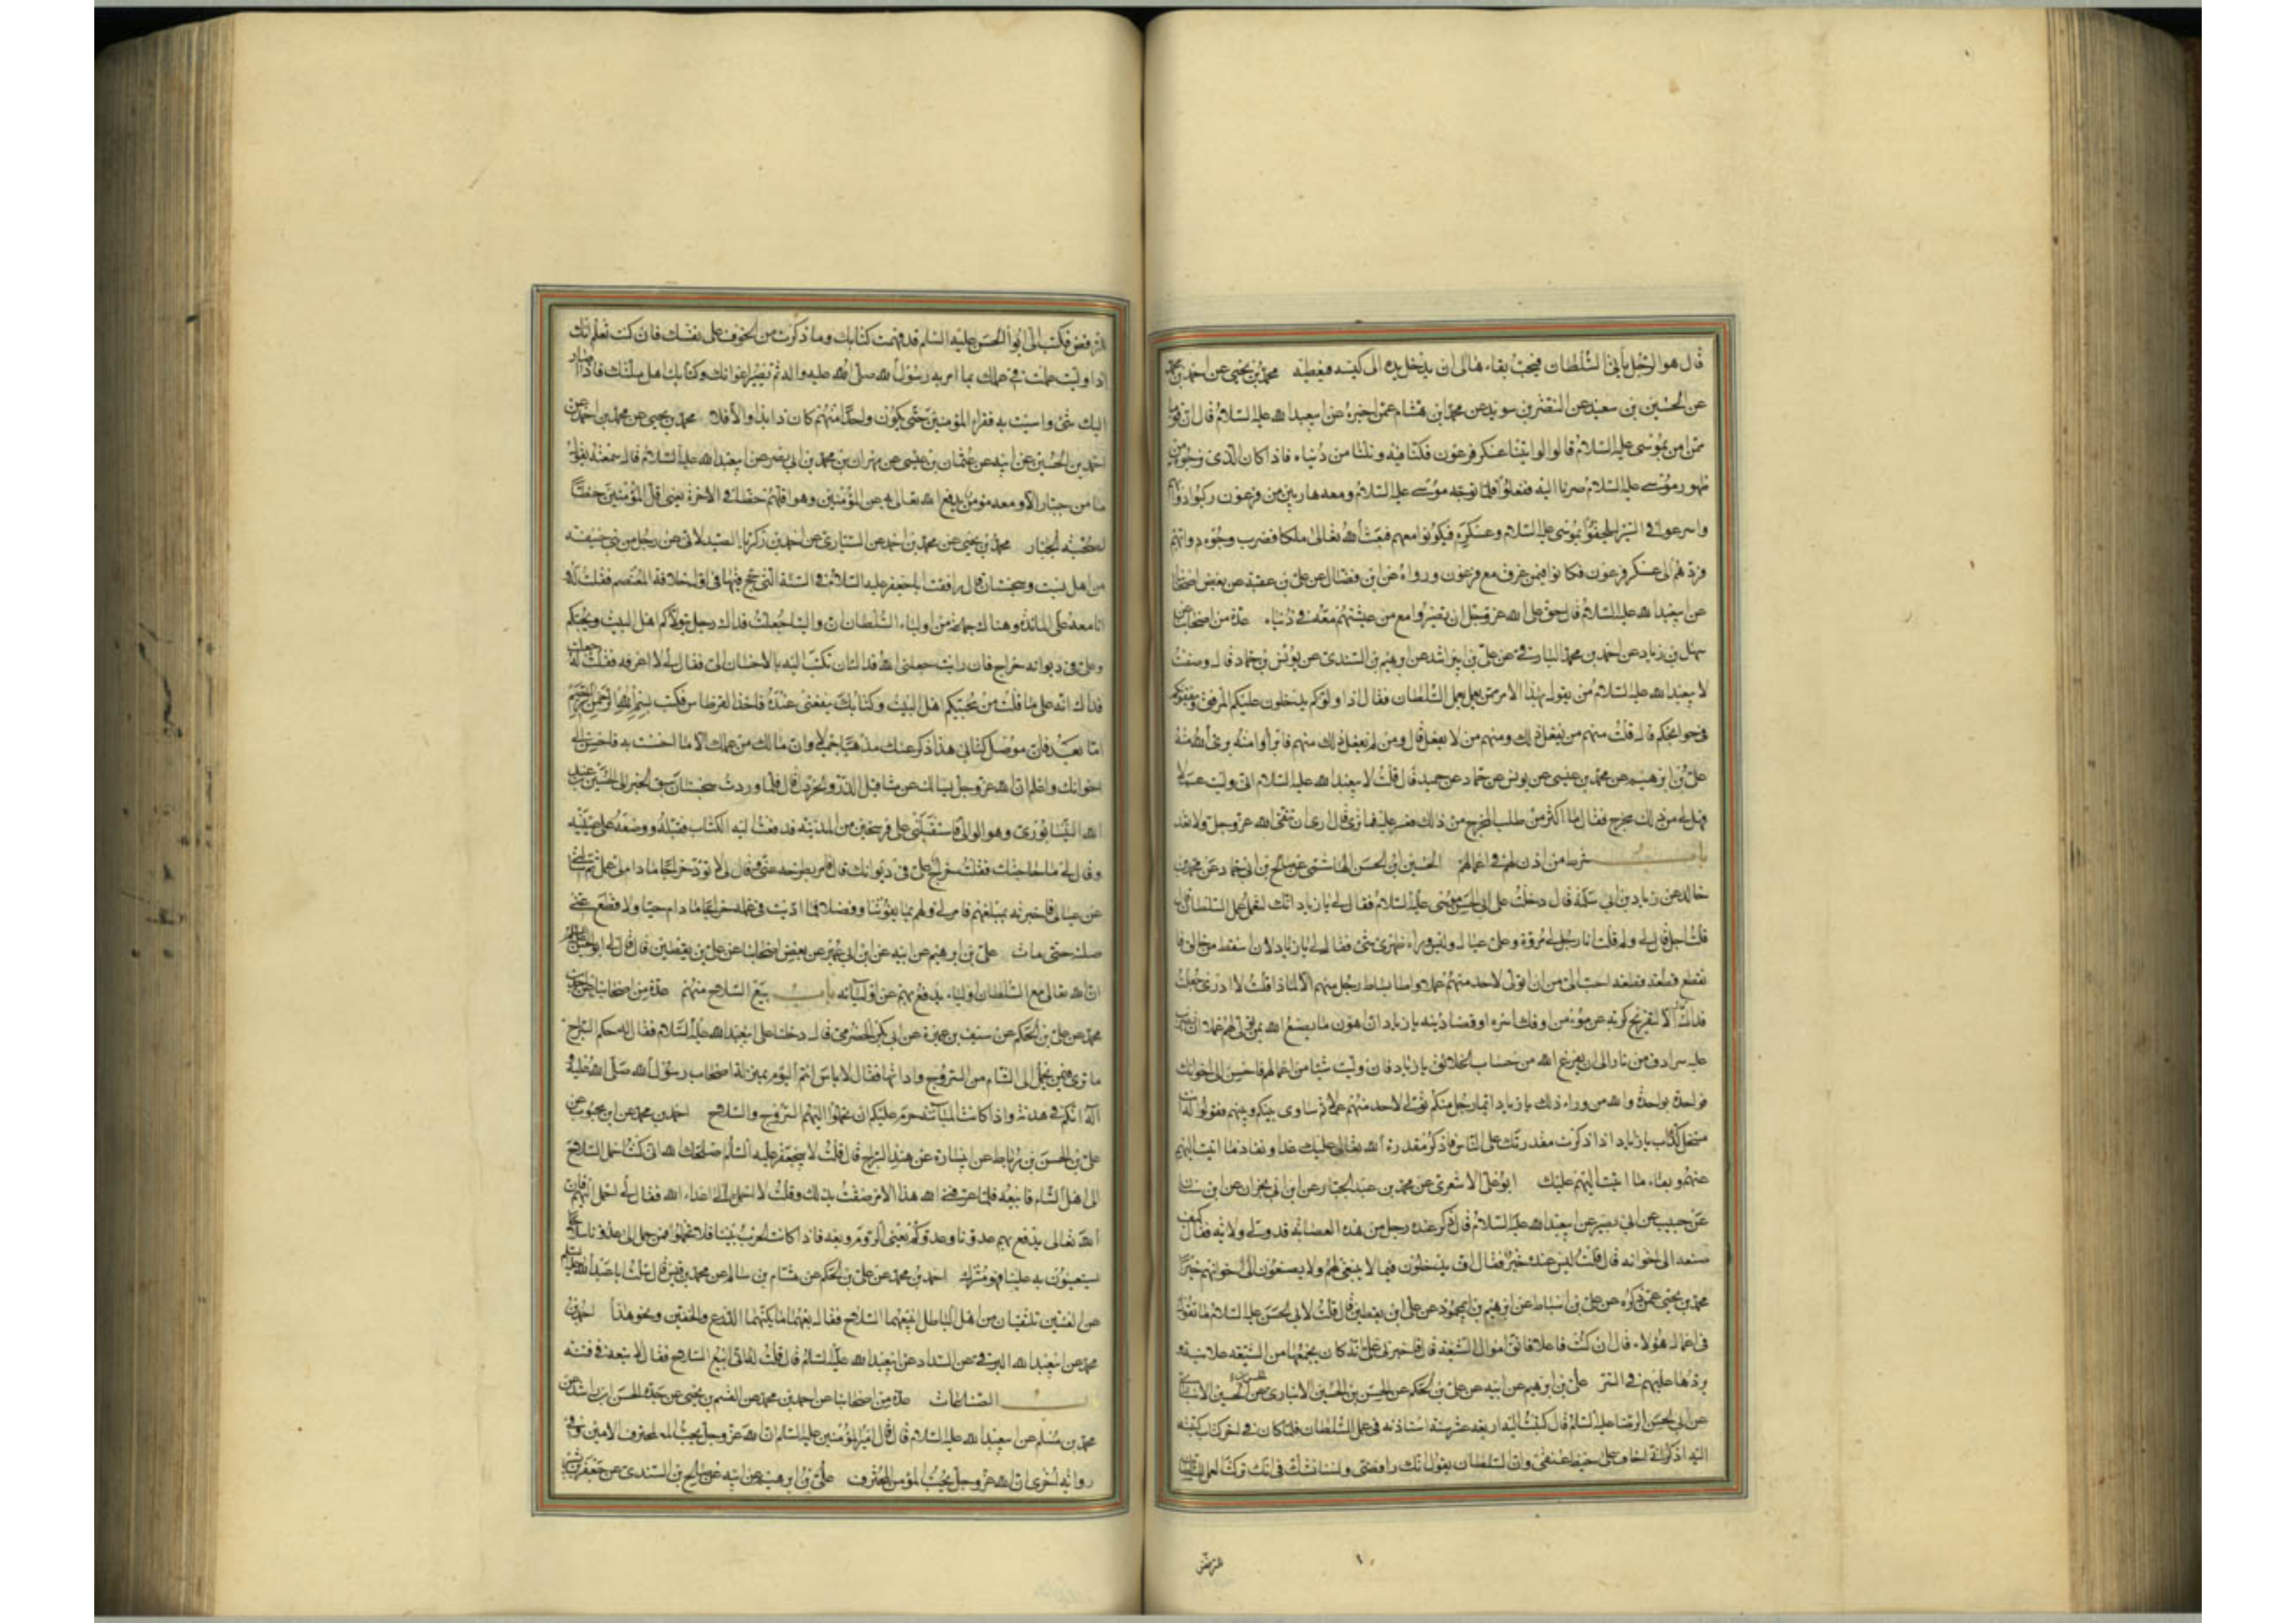 قال هو الرجل يأتي السلطان فيحب بقاءه الى ان يدخل يده الى كيسه فيعطيه محمد بن يحيى عن احمد بن محمد
عن الحسين بن سعيد عن النضر بن سويد عن محمد بن هشام عمن اخبره عن ابيعبدالله عليه السلام قال ان قوما
ممن امن بموسى عليه السلام قالوا لو اتينا عسكر فرعون فكنا فيه ونلنا من دنياه فاذا كان الذى نرجوه من
ظهور موسى عليه السلام صرنا اليه ففعلوا فلما توجه موسى عليه السلام ومعه هاربين من فرعون ركبوا دوابهم
واسرعوا في السير ليلحقوا بموسى عليه السلام وعسكره فيكونوا معهم فبعث الله تعالى ملكا فضرب وجوه دوابهم
فردهم الى عسكر فرعون فكانوا فيمن غرق مع فرعون ورواه عن ابن فضال عن على بن عقبة عن بعض اصحابنا
عن ابيعبدالله عليه السلام قال حق على الله عز وجل ان تصيروا مع من عشتم معه في دنياه عدة من اصحابنا عن
سهل بن زياد عن احمد بن محمد البارقى عن على بن ابى راشد عن ابرهيم بن السندى عن يونس بن حماد قال وصفت
لابيعبدالله عليه السلام من يقول بهذا الامر ممن يعمل عمل السلطان فقال اذا ولوكم يدخلون عليكم المرفق وينفعونكم
في حوائجكم قال قلت منهم من يفعل ذلك ومنهم من لا يفعل قال ومن لم يفعل ذلك منهم فابرأوا منه برئ الله منه
على بن ابرهيم عن محمد بن عيسى عن يونس عن حماد عن حميد قال قلت لابيعبدالله عليه السلام انى وليت عملا
فهل لي من ذلك مخرج فقال ما اكثر من طلب المخرج من ذلك فعسر عليه فما ترى قال ارى ان تتقى الله عز وجل ولا تعد
باب شرط من اذن له في اعمالهم الحسين بن الحسن الهاشمى عن صالح بن ابى حماد عن محمد بن
خالد عن زياد بن ابى سلمة قال دخلت على ابى الحسن موسى عليه السلام فقال لي يا زياد انك لتعمل عمل السلطان قال
قلت اجل قال لي ولم قلت انا رجل لي مروة وعلى عيال وليس وراء ظهرى شئ فقال لي يا زياد لان اسقط من حالق فا
تقطع قطعة قطعة احب الى من ان اتولى لاحد منهم عملا او اطأ بساط رجل منهم الا لماذا قلت لا ادرى جعلت
فداك قال الا لتفريج كربة عن مؤمن او فك اسره او قضاء دينه يا زياد ان اهون ما يصنع الله بمن تولى لهم عملا ان يضرب
عليه سرادق من نار الى ان يفرغ الله من حساب الخلائق يا زياد فان وليت شيئا من اعمالهم فاحسن الى اخوانك
فواحدة بواحدة والله من وراء ذلك يا زياد ايما رجل منكم تولى لاحد منهم عملا ثم ساوى بينكم وبينهم فقولوا له انت
منتحل كذاب يا زياد اذا ذكرت مقدرتك على الناس فاذكر مقدرة الله تعالى عليك غدا ونفاد ما اتيت اليهم
عنهم وبقاء ما اتيت اليهم عليك ابو على الاشعرى عن محمد بن عبد الجبار عن ابن ابى نجران عن ابن سنان
عن حبيب عن ابى بصير عن ابيعبدالله عليه السلام قال ذكر عنده رجل من هذه العصابة قد ولى ولاية فقال كيف
صنعه الى اخوانه قال قلت ليس عنده خير فقال اف يدخلون فيما لا ينبغى لهم ولا يصنعون الى اخوانهم خيرا
محمد بن يحيى عمن ذكره عن على بن اسباط عن ابرهيم بن ابى محمود عن على بن يقطين قال قلت لابى الحسن عليه السلام ما تقول
في اعمال هؤلاء قال ان كنت فاعلا فاتق اموال الشيعة قال فاخبرنى على انه كان يجبيها من الشيعة علانية و
يردها عليهم في السر على بن ابرهيم عن ابيه عن على بن الحكم عن الحسن بن الحسين الانبارى
عن ابى الحسن الرضا عليه السلام قال كتبت اليه اربعة عشر سنة استاذنه في عمل السلطان فلما كان في اخر كتاب كتبته
اليه اذكر انى اخاف على خيط عنقى وان السلطان يقول انك رافضى ولسنا نشك في انك تركت العمل للسلطان
للرفض
للرفض فكتب الى ابو الحسن عليه السلام قد فهمت كتابك وما ذكرت من الخوف على نفسك فان كنت تعلم انك
اذا وليت عملت في عملك بما امر به رسول الله صلى الله عليه واله ثم تصير اعوانك وكتابك اهل ملتك فاذا صار
اليك شئ واسيت به فقراء المؤمنين حتى يكون واحدا منهم كان ذا بذا والا فلا محمد بن يحيى عن محمد بن احمد عن
احمد بن الحسين عن ابيه عن عثمان بن عيسى عن مهران بن محمد بن ابى بصير عن ابيعبدالله عليه السلام قال سمعته يقول
ما من جبار الا ومعه مؤمن يدفع الله تعالى به عن المؤمنين وهو اقلهم حظا في الاخرة يعنى اقل المؤمنين حظا
لصحبة الجبار محمد بن يحيى عن محمد بن احمد عن السيارى عن احمد بن زكريا الصيدلانى عن رجل من بنى حنيفة
من اهل بست وسجستان قال رافقت اباجعفر عليه السلام في السنة التى حج فيها في اول خلافة المعتصم فقلت له و
انا معه على المائدة وهناك جماعة من اولياء السلطان ان والينا جعلت فداك رجل يتولاكم اهل البيت ويحبكم
وعلى في ديوانه خراج فان رايت جعلنى الله فداك ان تكتب اليه بالاحسان الى فقال لي لا اعرفه فقلت له جعلت
فداك انه على ما قلت من محبيكم اهل البيت وكتابك ينفعنى عنده فاخذ القرطاس فكتب بسم الله الرحمن الرحيم
اما بعد فان موصل كتابى هذا ذكر عنك مذهبا جميلا وان مالك من عملك الا ما احسنت به فاحسن الى
اخوانك واعلم ان الله عز وجل يسالك عن مثاقيل الذر والخردل قال فلما وردت سجستان سبق الخبر الى الحسين بن عبد
الله النيسابورى وهو الوالى فاستقبلنى على فرسخين من المدينة فدفعت اليه الكتاب فقبله ووضعه على عينيه
وقال لي ما حاجتك فقلت خراج على في ديوانك قال فامر بطرحه عنى وقال لي لا تؤد خراجا ما دام لى عمل ثم سالنى
عن عيالى فاخبرته بمبلغهم فامر لي ولهم بما يقوتنا وفضلا فما اديت في عمله خراجا ما دام حيا ولا قطع عنى
صلته حتى مات على بن ابرهيم عن ابيه عن ابن ابى عمير عن بعض اصحابنا عن على بن يقطين قال قال لي ابو الحسن
ان لله تعالى مع السلطان اولياء يدفع بهم عن اوليائه باب بيع السلاح منهم عدة من اصحابنا عن احمد بن
محمد عن على بن الحكم عن سيف بن عميرة عن ابى بكر الحضرمى قال دخلنا على ابيعبدالله عليه السلام فقال له حكم السراج
ما ترى فيمن يحمل الى الشام من السروج واداتها فقال لا باس انتم اليوم بمنزلة اصحاب رسول الله صلى الله عليه و
آله انكم في هدنة واذا كانت المباينة حرم عليكم ان تحملوا اليهم السروج والسلاح احمد بن محمد عن ابن محبوب عن
على بن الحسن بن رباط عن ابى سارة عن هند السراج قال قلت لابيجعفر عليه السلام اصلحك الله انى كنت احمل السلاح
الى اهل الشام فابيعه فلما عرفنى الله هذا الامر ضقت بذلك وقلت لا احمل الى اعداء الله فقال لي احمل اليهم فان
الله تعالى يدفع بهم عدونا وعدوكم يعنى الروم وبعه فاذا كانت الحرب بيننا فلا تحملوا فمن حمل الى عدونا سلاحا
يستعينون به علينا فهو مشرك احمد بن محمد عن على بن الحكم عن هشام بن سالم عن محمد بن قيس قال سالت اباعبدالله عليه السلام
عن الفئتين تلتقيان من اهل الباطل ابيعهما السلاح فقال بعهما ما يكنهما الدرع والخفين ونحو هذا احمد بن
محمد عن ابيعبدالله البرقى عن السراد عن ابيعبدالله عليه السلام قال قلت له انى ابيع السلاح فقال لا تبعه في فتنة
باب الصناعات عدة من اصحابنا عن احمد بن محمد عن القسم بن يحيى عن جده الحسن بن راشد عن
محمد بن مسلم عن ابيعبدالله عليه السلام قال قال امير المؤمنين عليه السلام ان الله عز وجل يحب المحترف الامين وفي
رواية اخرى ان الله عز وجل يحب المؤمن المحترف على بن ابرهيم عن ابيه عن صالح بن السندى عن جعفر بن بشير